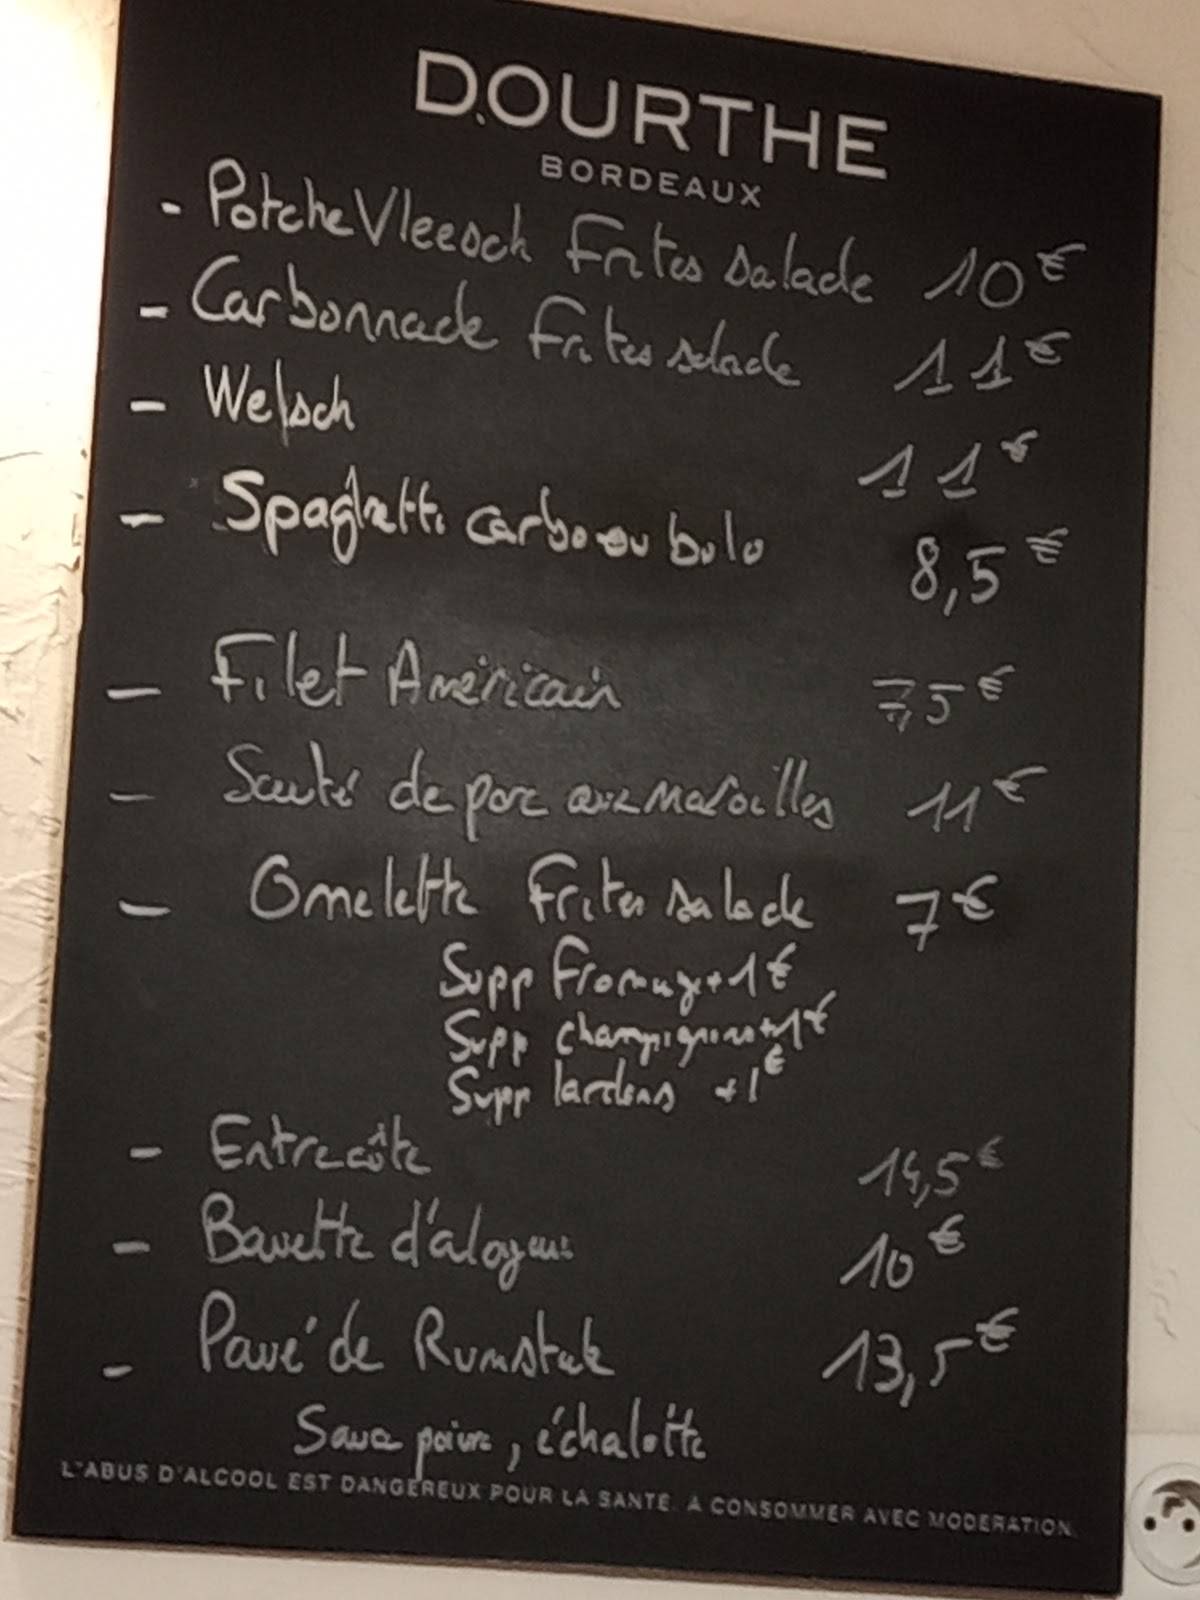 DOURTHE
BORDEAUX
- PotcheVleesch Frites salade 10€
- Carbonnade Frites salade 11€
- Welsch 11€
- Spaghetti carbo ou bolo 8,5€
- Filet Américain 7,5€
- Sauté de porc aux Maroilles 11€
- Omelette Frites salade 7€
Supp Fromage +1€
Supp champignons +1€
Supp lardons +1€
- Entrecôte 14,5€
- Bavette d'aloyau 10€
- Pavé de Rumsteak 13,5€
Sauce poivre, échalotte
L'ABUS D'ALCOOL EST DANGEREUX POUR LA SANTÉ. A CONSOMMER AVEC MODERATION.